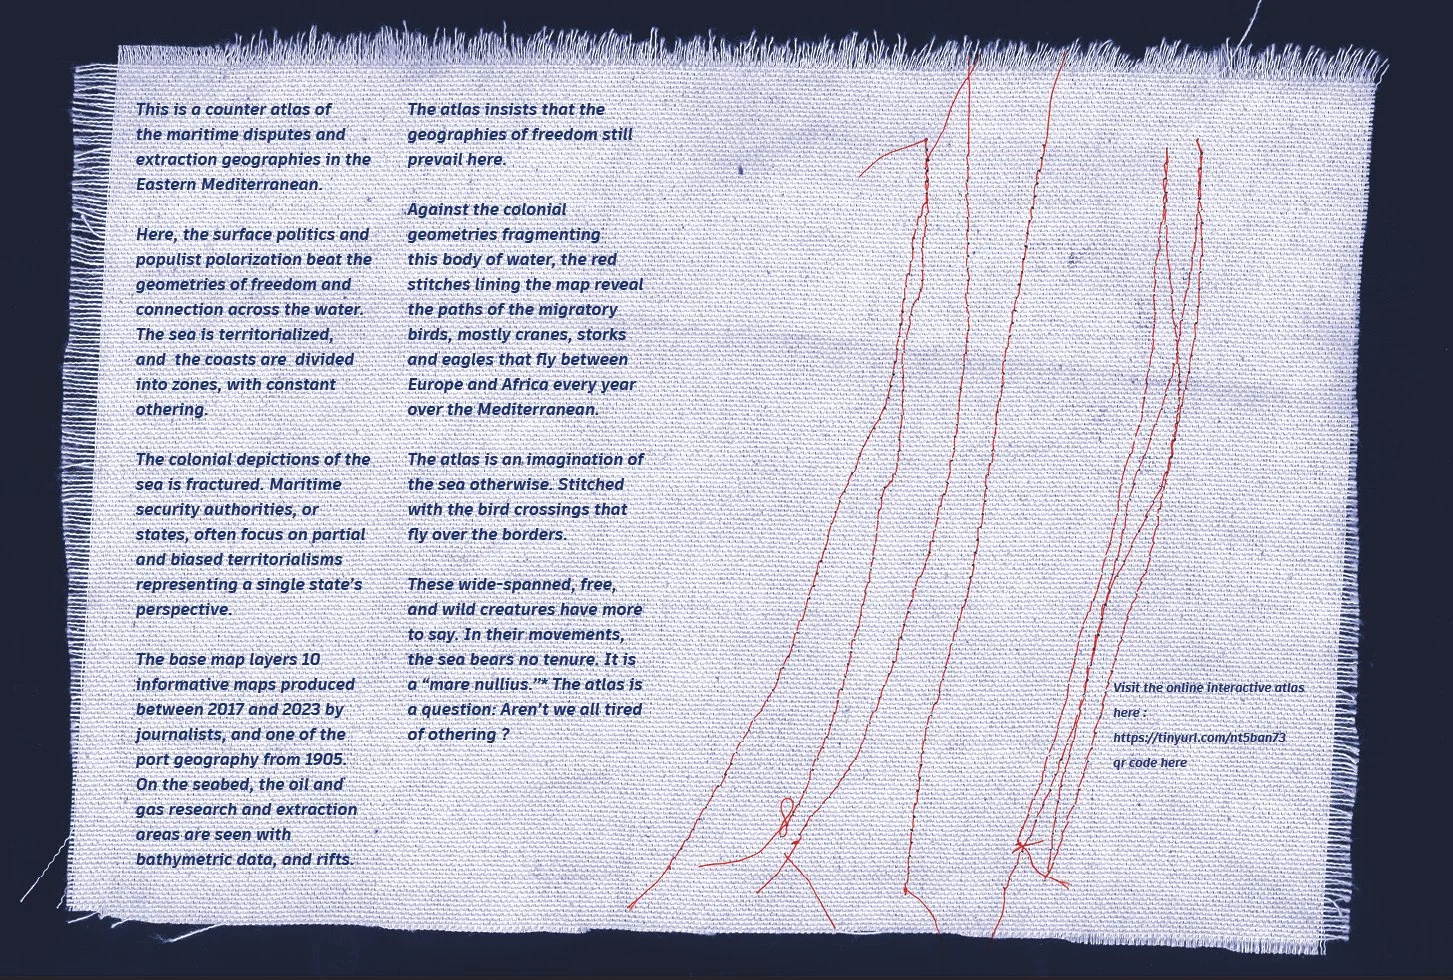 This is a counter atlas of
the maritime disputes and
extraction geographies in the
Eastern Mediterranean.
Here, the surface politics and
populist polarization beat the
geometries of freedom and
connection across the water.
The sea is territorialized,
and the coasts are divided
into zones, with constant
othering.
The colonial depictions of the
sea is fractured. Maritime
security authorities, or
states, often focus on partial
and biased territorialisms
representing a single state's
perspective.
The base map layers 10
informative maps produced
between 2017 and 2023 by
journalists, and one of the
port geography from 1905.
On the seabed, the oil and
gas research and extraction
areas are seen with
bathymetric data, and rifts.
The atlas insists that the
geographies of freedom still
prevail here.
Against the colonial
geometries fragmenting
this body of water, the red
stitches lining the map reveal
the paths of the migratory
birds, mostly cranes, storks
and eagles that fly between
Europe and Africa every year
over the Mediterranean.
The atlas is an imagination of
the sea otherwise. Stitched
with the bird crossings that
fly over the borders.
These wide-spanned, free,
and wild creatures have more
to say. In their movements,
the sea bears no tenure. It is
a “mare nullius.”* The atlas is
a question: Aren't we all tired
of othering ?
Visit the online interactive atlas
here :
https://tinyurl.com/nt5ban73
qr code here